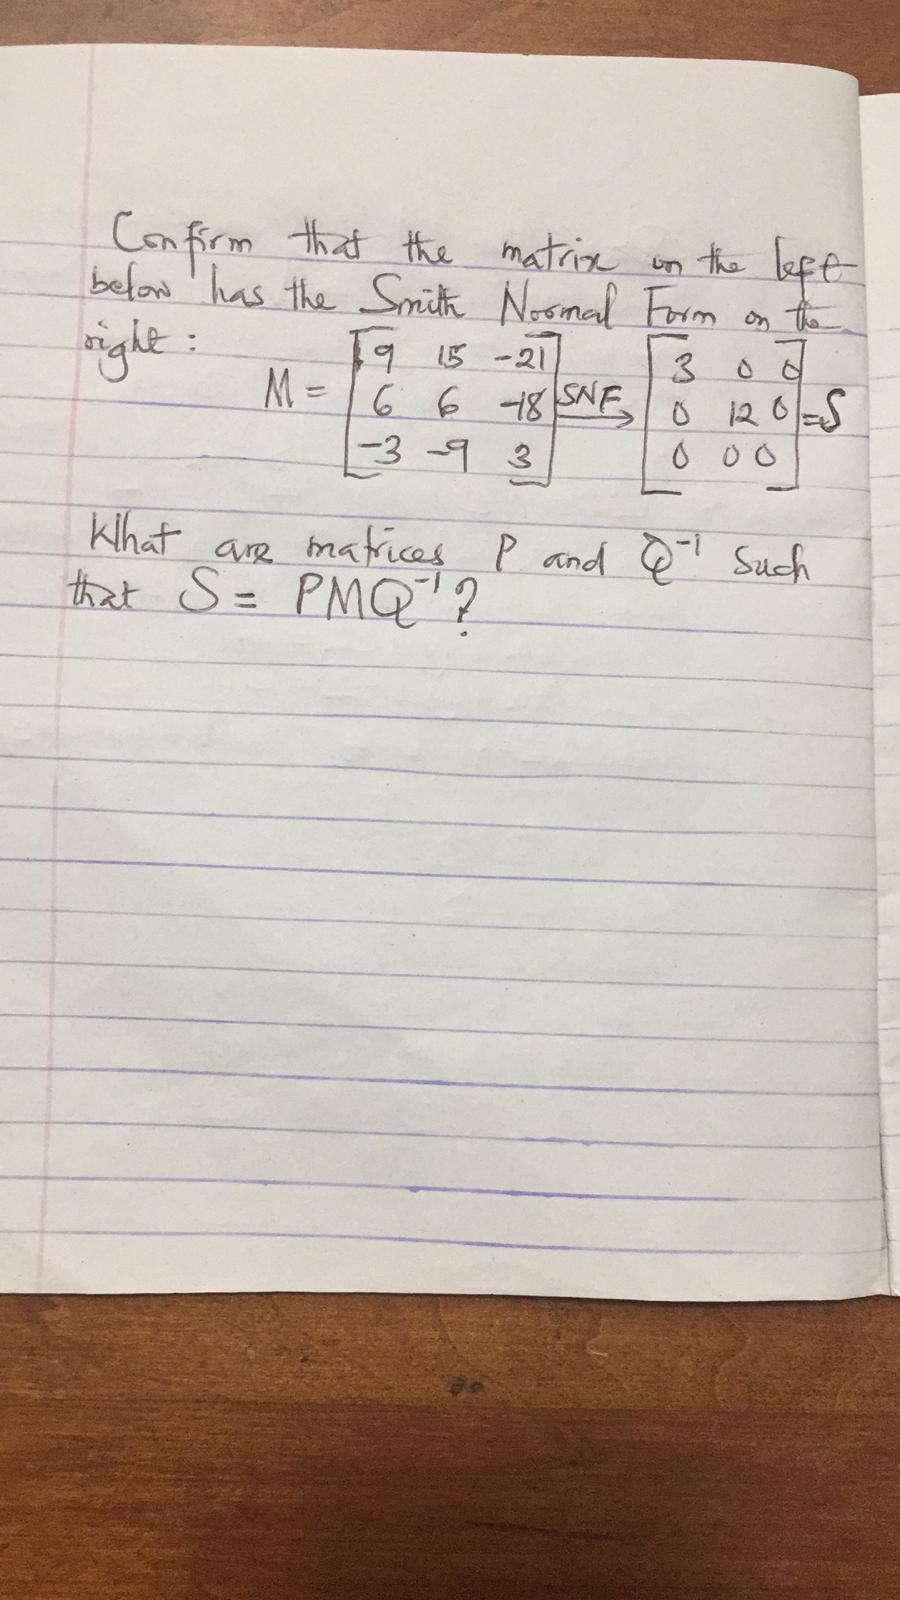 Confirm that the matrix on the left
below has the Smith Normal Form on the
right:
M = [9 15 -21; 6 6 -18; -3 -9 3] SNF→ [3 0 0; 0 12 0; 0 0 0] = S
What are matrices P and Q⁻¹ such
that S = PMQ⁻¹?